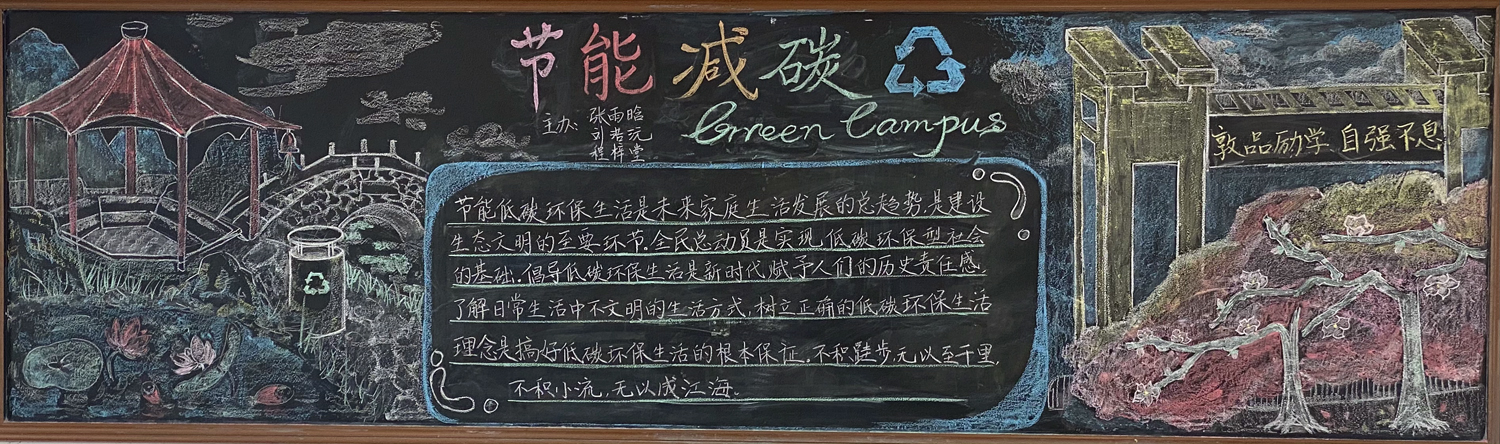 节能减碳
Green Campus
主办: 张雨晗
刘若沅
程梓莹
节能低碳环保生活是未来家庭生活发展的总趋势,是建设
生态文明的至要环节.全民总动员是实现低碳环保型社会
的基础.倡导低碳环保生活是新时代赋予人们的历史责任感.
了解日常生活中不文明的生活方式,树立正确的低碳环保生活
理念是搞好低碳环保生活的根本保证.不积跬步,无以至千里,
不积小流,无以成江海。
敦品励学 自强不息